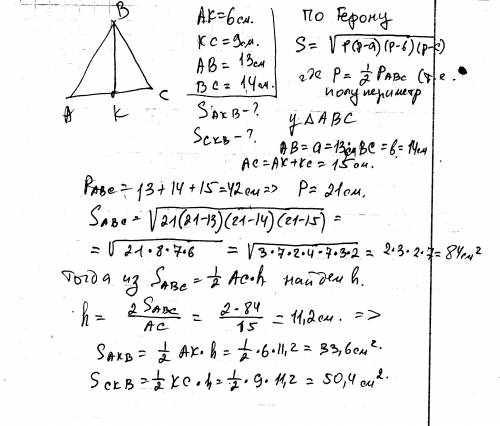 B
A K C
AK = 6 см.
KC = 9 см.
AB = 13 см
BC = 14 см.
S AKB - ?
S CKB - ?
По Герону
S = √p(p-a)(p-b)(p-c)
где P = 1/2 P ABC (т.е.
полупериметр
у △ABC
AB = a = 13 см BC = b = 14 см
AC = AK + KC = 15 см.
P ABC = 13 + 14 + 15 = 42 см => P = 21 см.
S ABC = √21(21-13)(21-14)(21-15) =
= √21·8·7·6 = √3·7·2·4·7·3·2 = 2·3·2·7 = 84 см²
Тогда из S ABC = 1/2 AC·h найдем h.
h = 2S ABC / AC = 2·84 / 15 = 11,2 см. =>
S AKB = 1/2 AK·h = 1/2·6·11,2 = 33,6 см².
S CKB = 1/2 KC·h = 1/2·9·11,2 = 50,4 см².